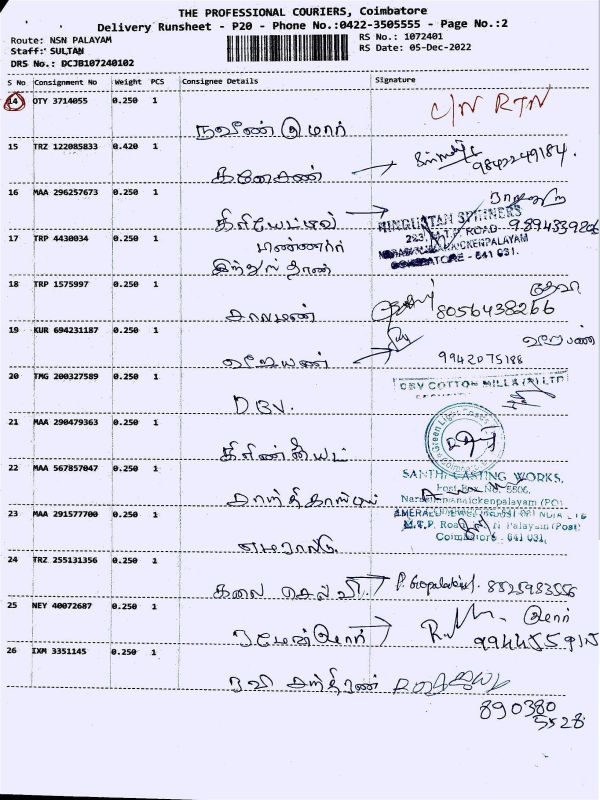 THE PROFESSIONAL COURIERS, Coimbatore
Delivery Runsheet - P20 - Phone No.:0422-3505555 - Page No.:2
Route: NSN PALAYAM
Staff: SULTAN
DRS No.: DCJB107240102
RS No.: 1072401
RS Date: 05-Dec-2022
S No Consignment No Weight PCS Consignee Details Signature
14 OTY 3714055 0.250 1 C/N RTN
நவீண் குமார்
15 TRZ 122085833 0.420 1 9842249184.
கணேசண்
16 MAA 296257673 0.250 1
HINDUSTAN SPINNERS
223, M.T.P. ROAD 9894339206
COIMBATORE - 641 031.
17 TRP 4430034 1
18 TRP 1575997 0.250 1 தேவி
8056438266
19 KUR 694231187 0.250 1
9942075188
விஜயண்
20 TMG 200327589 0.250 1 DBV COTTON MILLS (P) LTD
DBV.
21 MAA 290479363 0.250 1 Green Light Foods
22 MAA 567857047 0.250 1 SANTHI CASTING WORKS,
Post Box No. 5806,
Narasimhanaickenpalayam (PO)
23 MAA 291577700 0.250 1
M.T.P. Road, N Palayam (Post)
Coimbatore - 641 031.
எமரால்டு
24 TRZ 255131356 0.250 1
கலை செல்வி P. Gopalakrish. 8825983556
25 NEY 40072687 0.250 1
26 IXM 3351145 0.250 1
ரவி சந்திரண்
890380
5528